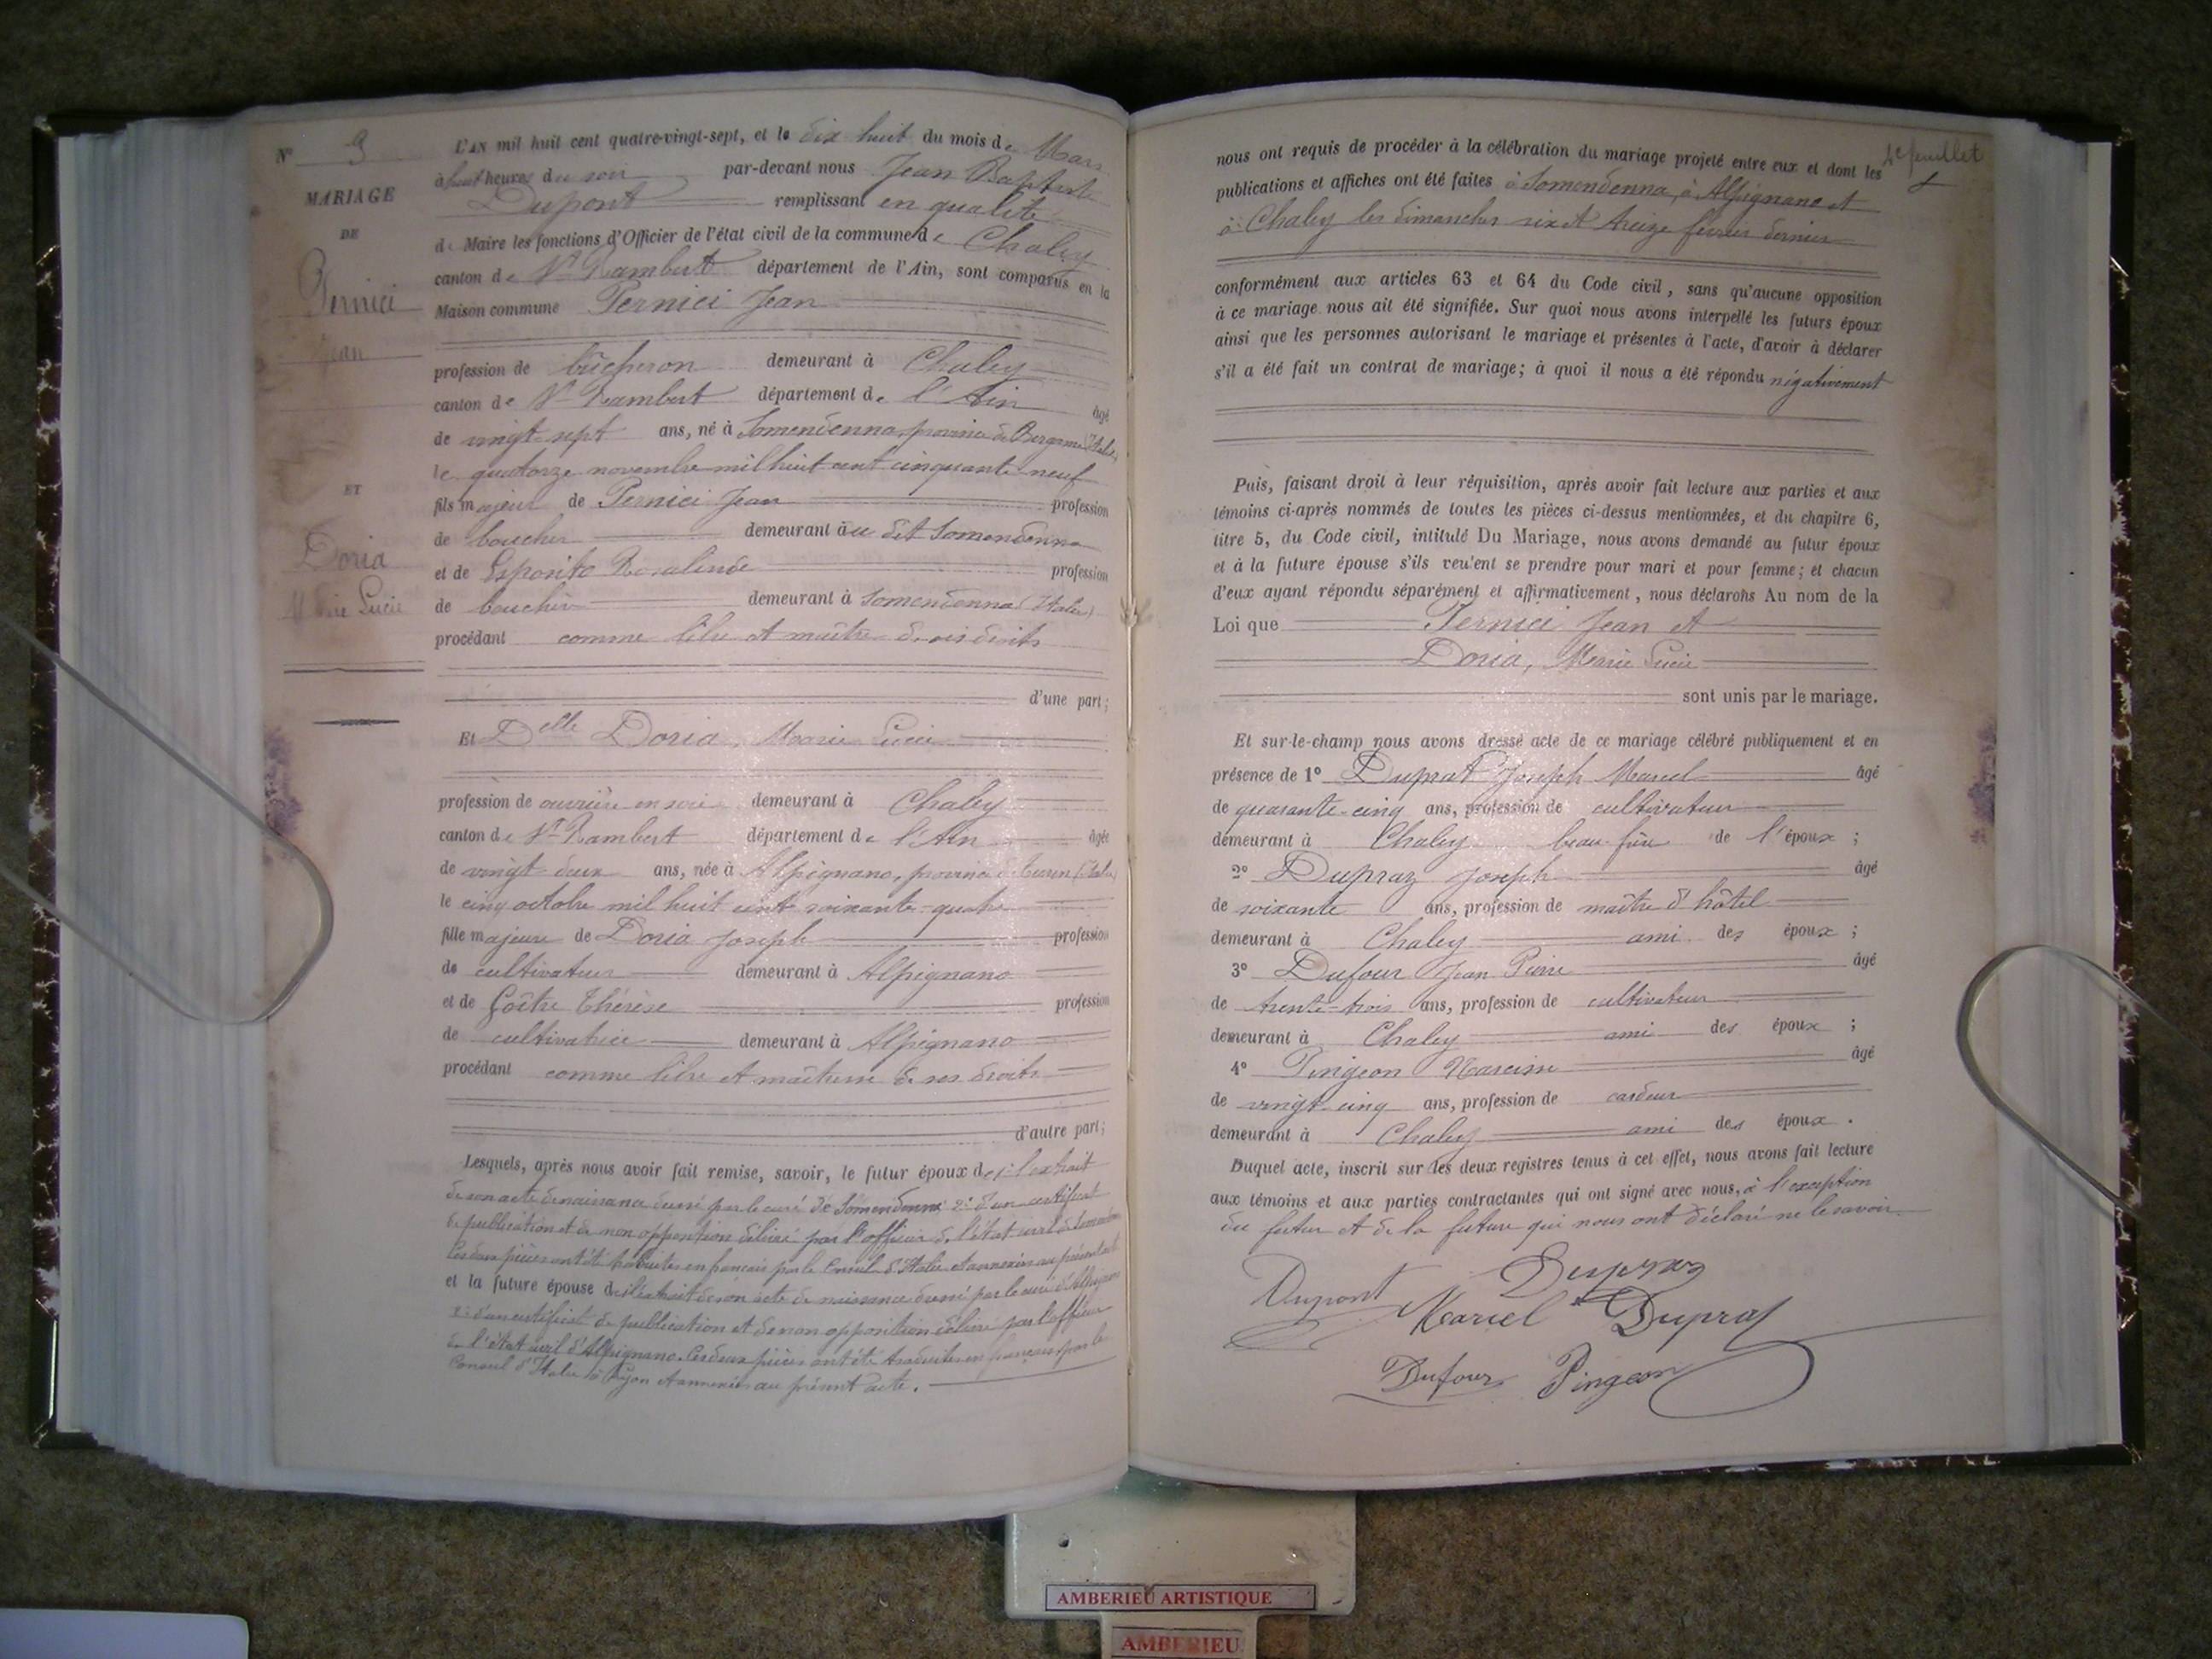 N° 3
MARIAGE
DE
Pernici
Jean
ET
Doria
Marie Lucie
L'AN mil huit cent quatre-vingt-sept, et le dix huit du mois de Mars
à huit heures du soir par-devant nous Jean Baptiste
Dupont remplissant en qualité
de Maire les fonctions d'Officier de l'état civil de la commune de Chaley
canton de St Rambert département de l'Ain, sont comparus en la
Maison commune Pernici Jean
profession de bûcheron demeurant à Chaley
canton de St Rambert département de l'Ain âgé
de vingt-sept ans, né à Somendenna, province de Bergame (Italie)
le quatorze novembre mil huit cent cinquante-neuf
fils majeur de Pernici Jean profession
de boucher demeurant au dit Somendenna
et de Esposito Rosalinde profession
de bouchère demeurant à Somendenna (Italie)
procédant comme libre et maître de ses droits
d'une part;
Et Delle Doria, Marie Lucie
profession de ouvrière en soie demeurant à Chaley
canton de St Rambert département de l'Ain âgée
de vingt-deux ans, née à Alpignano, province de Turin (Italie)
le cinq octobre mil huit cent soixante-quatre
fille majeure de Doria Joseph profession
de cultivateur demeurant à Alpignano
et de Goître Thérèse profession
de cultivatrice demeurant à Alpignano
procédant comme libre et maîtresse de ses droits
d'autre part;
Lesquels, après nous avoir fait remise, savoir, le futur époux de 1° l'extrait
de son acte de naissance dressé par le curé de Somendenna 2° d'un certificat
de publication et de non opposition délivré par l'officier de l'état civil de Somendenna
Ces deux pièces ont été traduites en français par le Consul d'Italie et annexées au présent acte
et la future épouse de 1° l'extrait de son acte de naissance dressé par le curé d'Alpignano
2° d'un certificat de publication et de non opposition délivré par l'officier
de l'état civil d'Alpignano. Ces deux pièces ont été traduites en français par le
Consul d'Italie à Lyon et annexées au présent acte.
4e feuillet
nous ont requis de procéder à la célébration du mariage projeté entre eux et dont les
publications et affiches ont été faites à Somendenna, à Alpignano et
à Chaley les dimanches six et treize février dernier
conformément aux articles 63 et 64 du Code civil, sans qu'aucune opposition
à ce mariage nous ait été signifiée. Sur quoi nous avons interpellé les futurs époux
ainsi que les personnes autorisant le mariage et présentes à l'acte, d'avoir à déclarer
s'il a été fait un contrat de mariage; à quoi il nous a été répondu négativement
Puis, faisant droit à leur réquisition, après avoir fait lecture aux parties et aux
témoins ci-après nommés de toutes les pièces ci-dessus mentionnées, et du chapitre 6,
titre 5, du Code civil, intitulé Du Mariage, nous avons demandé au futur époux
et à la future épouse s'ils veulent se prendre pour mari et pour femme; et chacun
d'eux ayant répondu séparément et affirmativement, nous déclarons Au nom de la
Loi que Pernici Jean et
Doria, Marie Lucie
sont unis par le mariage.
Et sur-le-champ nous avons dressé acte de ce mariage célébré publiquement et en
présence de 1° Duprat Joseph Marcel âgé
de quarante-cinq ans, profession de cultivateur
demeurant à Chaley beau-frère de l'époux ;
2° Dupraz Joseph âgé
de soixante ans, profession de maître d'hôtel
demeurant à Chaley ami des époux ;
3° Dufour Jean Pierre âgé
de trente-trois ans, profession de cultivateur
demeurant à Chaley ami des époux ;
4° Pingeon Narcisse âgé
de vingt-cinq ans, profession de cardeur
demeurant à Chaley ami des époux .
Duquel acte, inscrit sur les deux registres tenus à cet effet, nous avons fait lecture
aux témoins et aux parties contractantes qui ont signé avec nous, à l'exception
du futur et de la future qui nous ont déclaré ne le savoir.
Dupont Dupraz
Marcel Duprat
Dufour Pingeon
AMBERIEU ARTISTIQUE
AMBERIEU